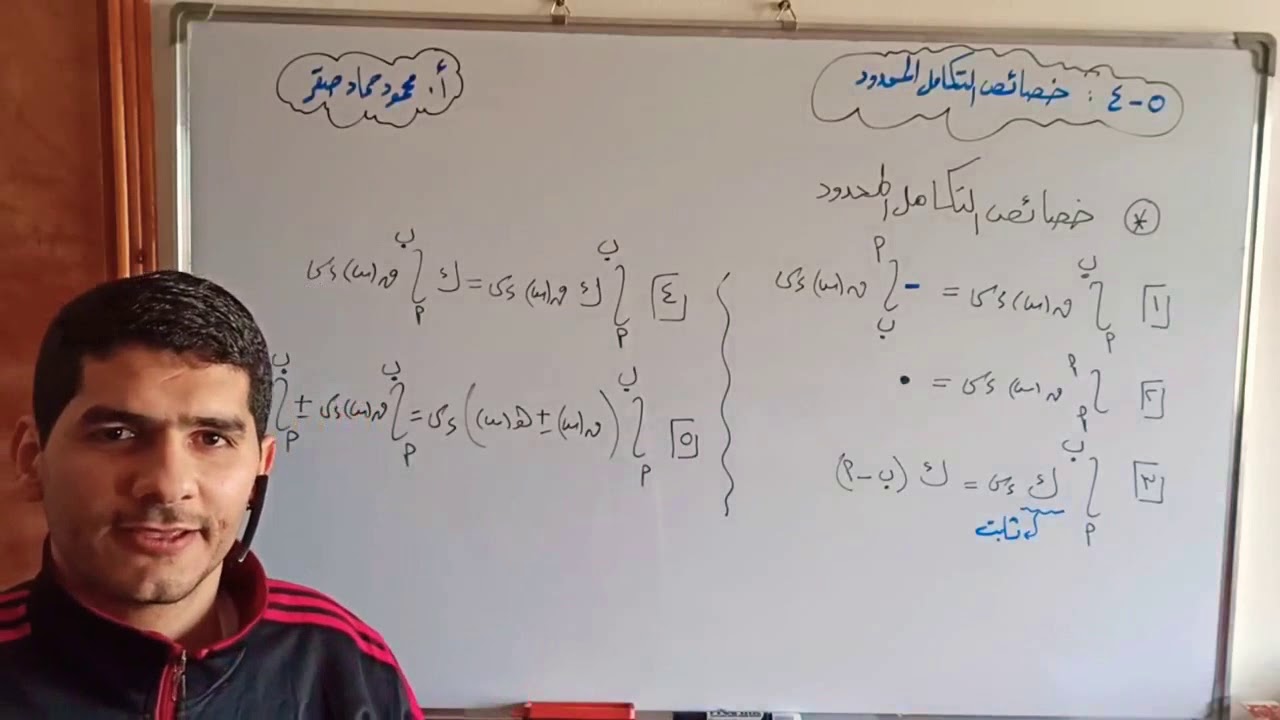 ٥-٤ : خصائص التكامل المحدود
أ. محمود حماد صقر
* خصائص التكامل المحدود
١ ∫_أ^ب ق(س) ءس = - ∫_ب^أ ق(س) ءس
٢ ∫_أ^أ ق(س) ءس = ٠
٣ ∫_أ^ب ك ءس = ك (ب-أ)
ثابت
٤ ∫_أ^ب ك ق(س) ءس = ك ∫_أ^ب ق(س) ءس
٥ ∫_أ^ب (ق(س) ± هـ(س)) ءس = ∫_أ^ب ق(س) ءس ± ∫_أ^ب